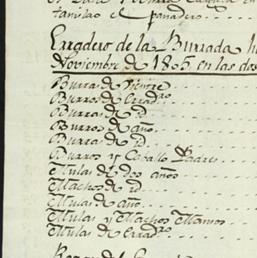 tanilao el panadero
Eregdero de la Burrada
Noviembre de 1805 en las dos
Burras de Vientre
Burros de Errad.ro
Burras de id.
Burros de año
Burras de id.
Burros y Cavallo Padres
Mulas de dos años
Machos de id.
Mulas de año
Mulas y Machos Mansos
Mulas de Errad.ro